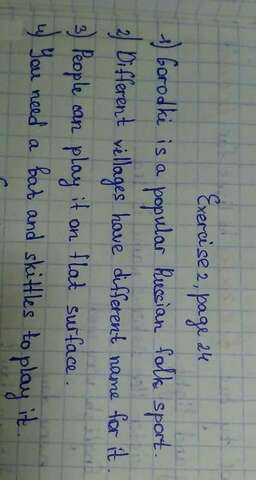 Exercise 2, page 24
1) Gorodki is a popular Russian folk sport.
2) Different villages have different name for it.
3) People can play it on flat surface.
4) You need a bat and skittles to play it.